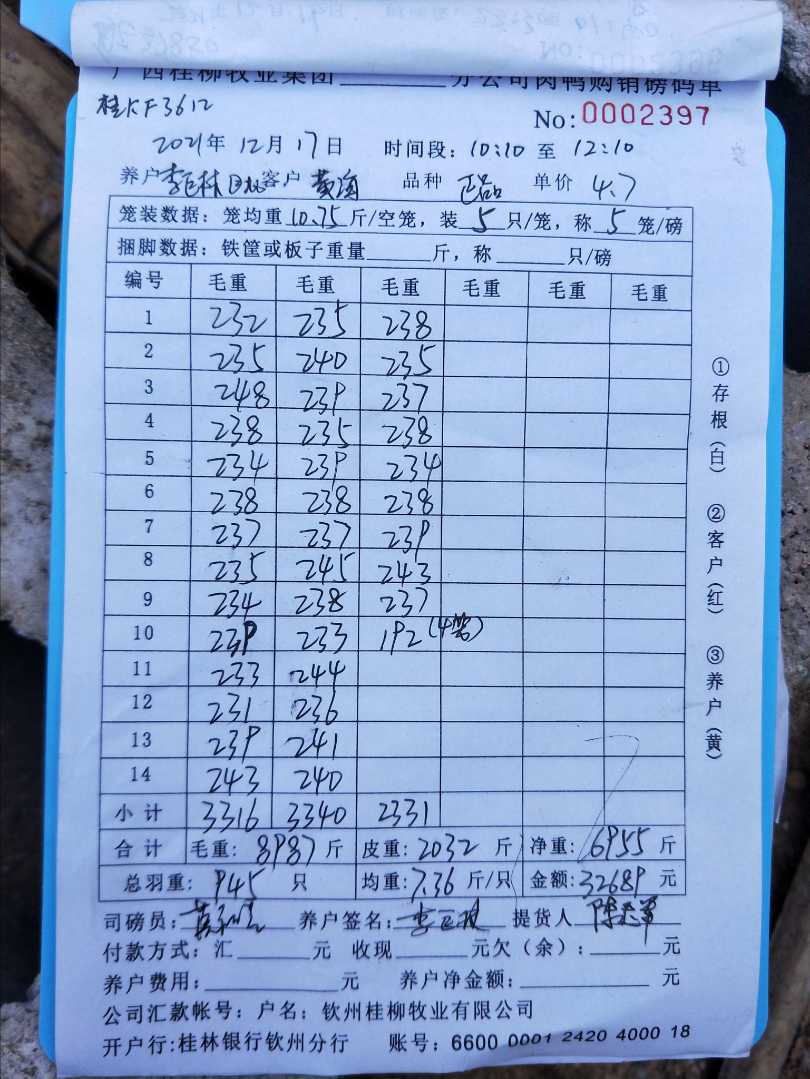 广西桂柳牧业集团______分公司肉鸭购销磅码单
桂KF3612
No: 0002397
2021年 12月 17日 时间段: 10:10 至 12:10
养户 李巨林 客户 黄海 品种 正品 单价 4.7
笼装数据: 笼均重 10.75 斤/空笼, 装 5 只/笼, 称 5 笼/磅
捆脚数据: 铁筐或板子重量______斤, 称______只/磅
编号 毛重 毛重 毛重 毛重 毛重 毛重
1 232 235 238
2 235 240 235
3 248 239 237
4 238 235 238
5 234 239 234
6 238 238 238
7 237 237 239
8 235 245 243
9 234 238 237
10 239 233 192 (4笼)
11 233 244
12 231 236
13 239 241
14 243 240
小计 3316 3340 2331
合计 毛重: 8987 斤 皮重: 2032 斤 净重: 6955 斤
总羽重: 945 只 均重: 7.36 斤/只 金额: 32689 元
司磅员: 养户签名: 提货人
付款方式: 汇______元 收现______元欠(余): ______元
养户费用: ______元 养户净金额: ______元
公司汇款帐号: 户名: 钦州桂柳牧业有限公司
开户行: 桂林银行钦州分行 账号: 6600 0001 2420 4000 18
①存根(白) ②客户(红) ③养户(黄)